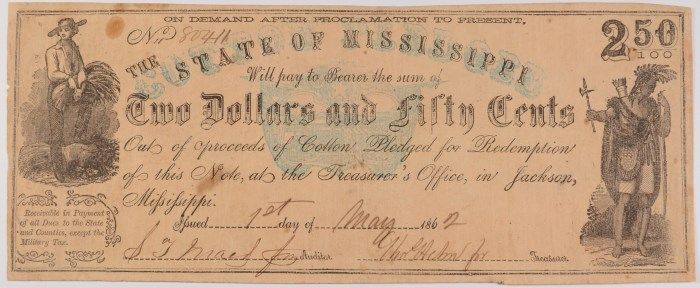 ON DEMAND AFTER PROCLAMATION TO PRESENT,
No.
THE STATE OF MISSISSIPPI
2 50
100
Will pay to Bearer the sum of
Two Dollars and Fifty Cents
Out of proceeds of Cotton Pledged for Redemption
of this Note, at the Treasurer's Office, in Jackson,
Mississippi.
Issued 1st day of May 1862
Receivable in Payment
of all Dues to the State
and Counties, except the
Military Tax.
Auditor
Treasurer.